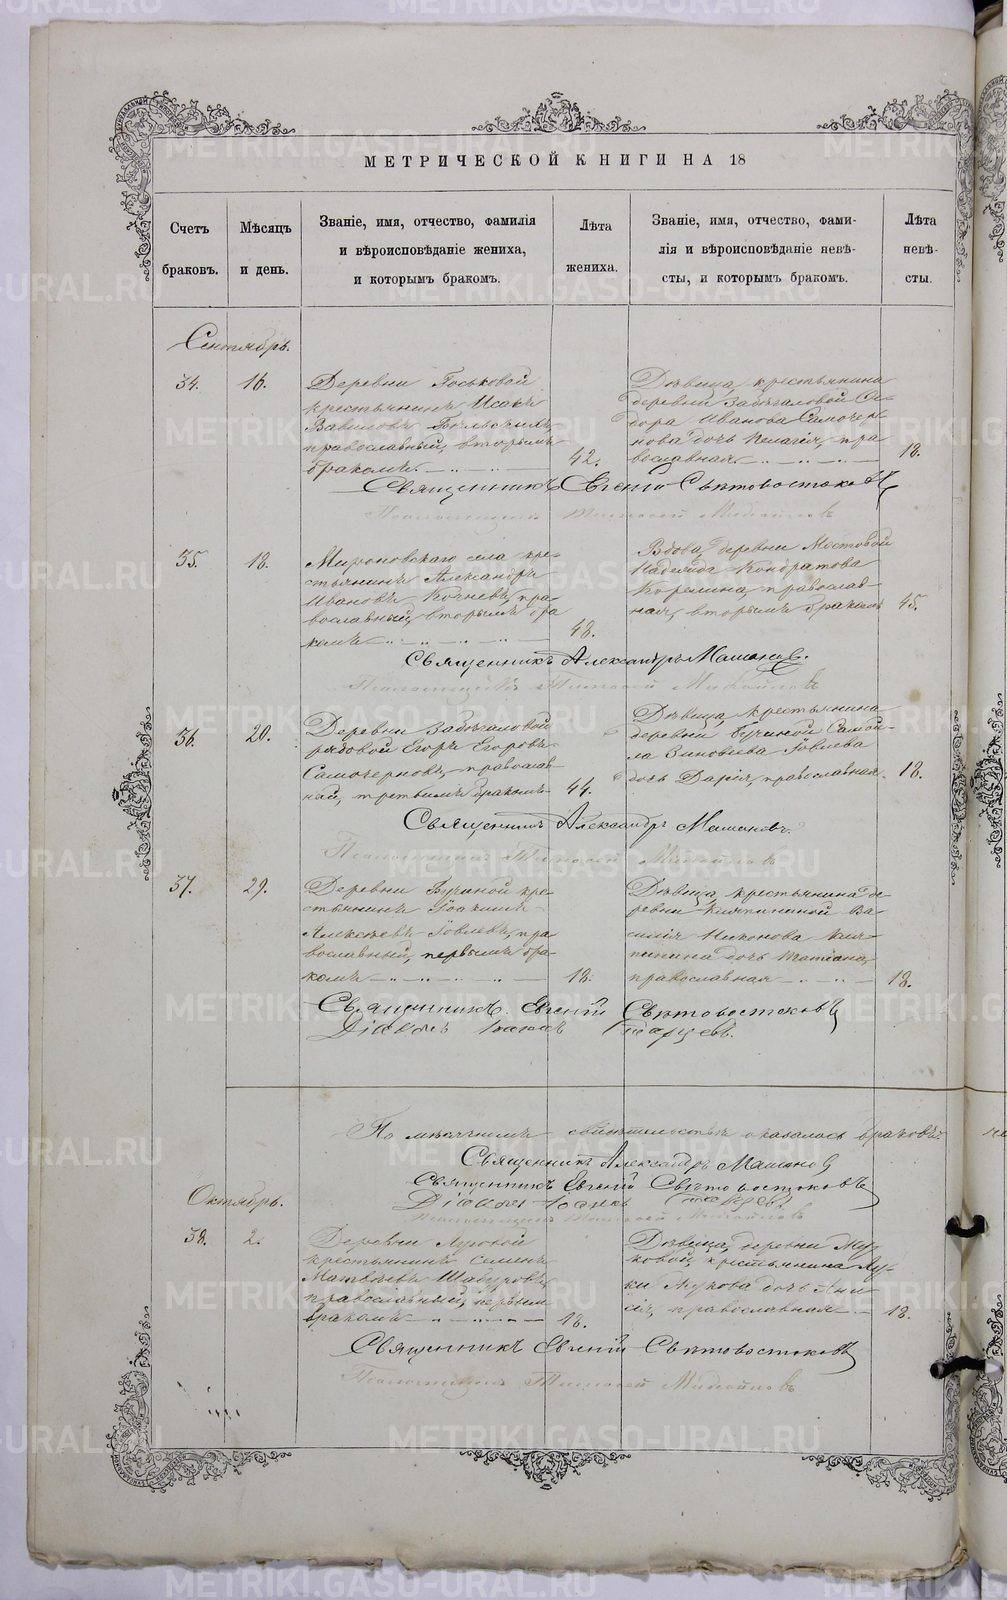 МЕТРИЧЕСКОЙ КНИГИ НА 18
Счетъ браковъ.
Мѣсяцъ и день.
Званіе, имя, отчество, фамилія
и вѣроисповѣданіе жениха,
и которымъ бракомъ.
Лѣта жениха.
Званіе, имя, отчество, фами-
лія и вѣроисповѣданіе невѣ-
сты, и которымъ бракомъ.
Лѣта невѣ-
сты.
Сентябрь.
34.
16.
Деревни
крестьянинъ Исакъ
Вавиловъ
православный, вторымъ
бракомъ.
42.
Дѣвица, крестьянина
деревни Забѣгаловой Си-
дора Иванова Самочер-
нова дочь Пелагія, пра
вославная.
18.
Священникъ Евгеній Свѣтовостоковъ
Псаломщикъ Тимофей Михайловъ
35.
18.
Мироновскаго села кре-
стьянинъ Александръ
Ивановъ Кочневъ, пра-
вославный, вторымъ бра
комъ
48.
Вдова, деревни Мостовой
Надежда Кондратова
православ-
ная, вторымъ бракомъ
45.
Священникъ Александръ Мамановъ.
Псаломщикъ Тимофей Михайловъ
36.
20.
Деревни Забѣгаловой
рядовой Егоръ Егоровъ
Самочерновъ, православ-
ный, третьимъ бракомъ
44.
Дѣвица, крестьянина
деревни Бучиной Самой-
ла Зиновьева Іовлева
дочь Дарія, православная
18.
Священникъ Александръ Мамановъ.
Псаломщикъ Тимофей Михайловъ
37.
29.
Деревни Бучиной кре-
стьянинъ Іоакимъ
Алексѣевъ Іовлевъ, пра
вославный, первымъ бра-
комъ
18.
Дѣвица, крестьянина де
ревни Ва-
силія Никонова
дочь Татіана,
православная
18.
Священникъ Евгеній Свѣтовостоковъ
Діаконъ Іоаннъ
По мѣсячнымъ свидѣтельствѣ оказалось браковъ:
Священникъ Александръ Мамановъ
Священникъ Евгеній Свѣтовостоковъ
Діаконъ Іоаннъ
Псаломщикъ Тимофей Михайловъ
Октябрь.
38.
2.
Деревни Луговой
крестьянинъ Семенъ
Матвѣевъ Шабуровъ,
православный, первымъ
бракомъ
18.
Дѣвица, деревни Лу-
ковой, крестьянина Лу-
ки Лукова дочь Ани
сія, православная
18.
Священникъ Евгеній Свѣтовостоковъ
Псаломщикъ Тимофей Михайловъ
METRIKI.GASO-URAL.RU